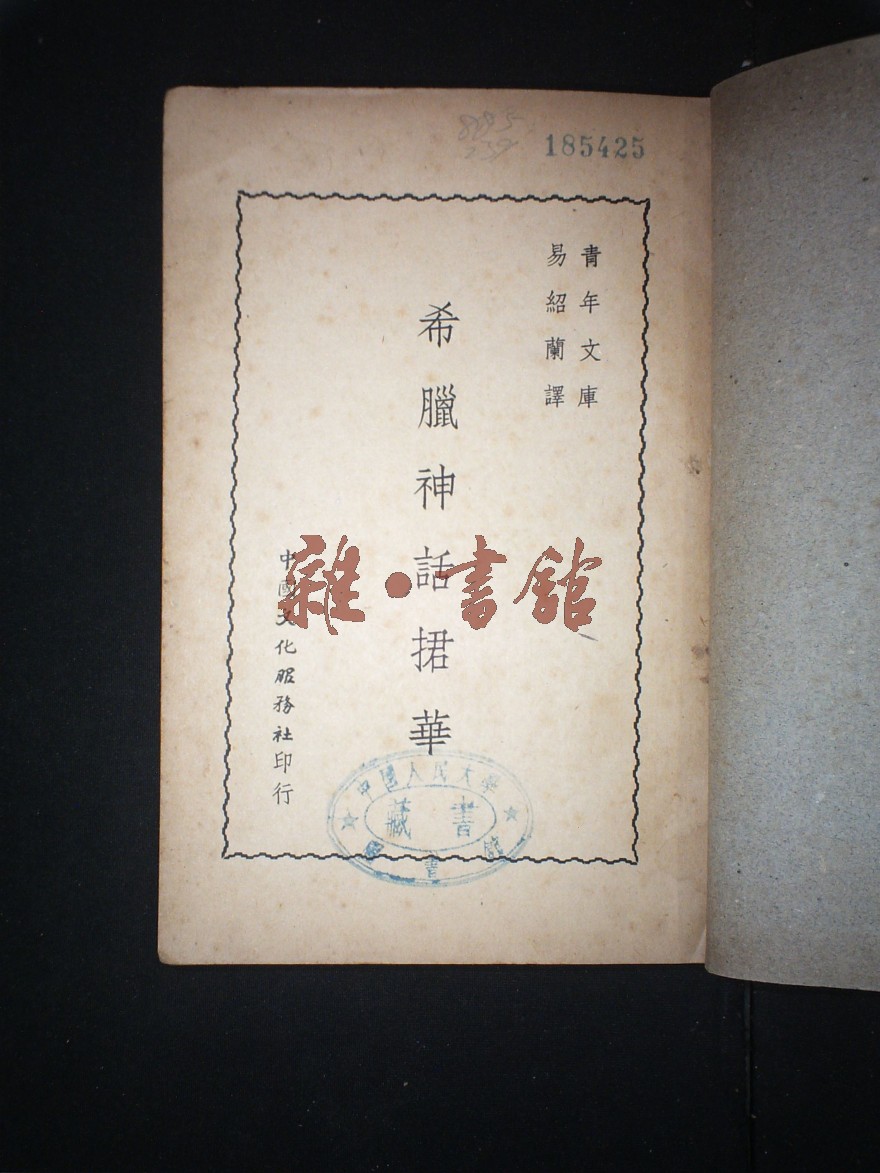 185425
青年文庫
易紹蘭譯
希臘神話捃華
中國文化服務社印行
雜·書館
中國人民大學
藏書
圖書館